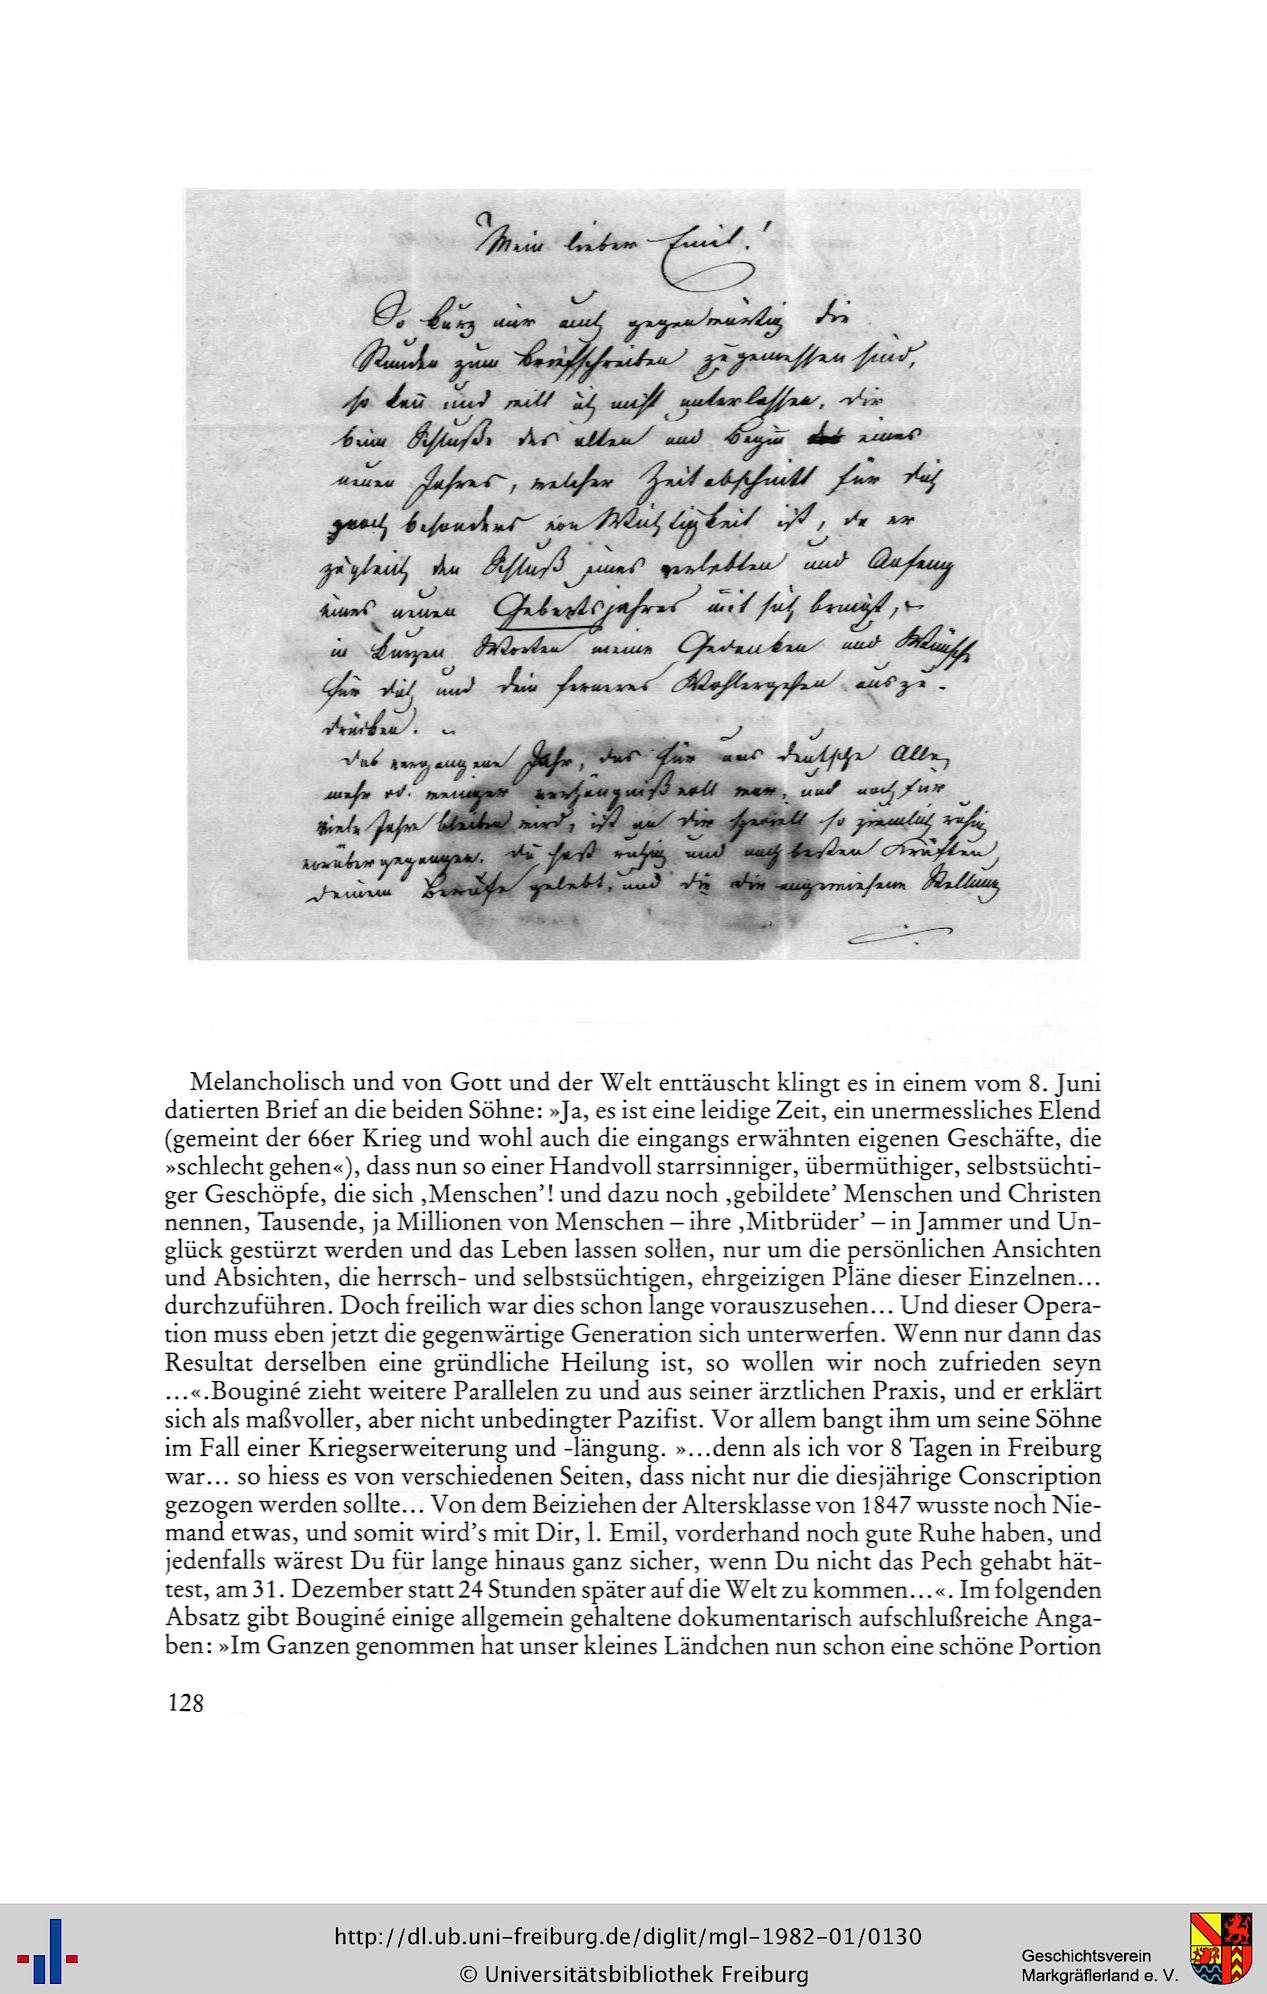 Mein lieber Emil!
So kurz mir auch gegenwärtig die
Stunden zum Briefschreiben zugemessen sind,
so kan̄ und will ich nicht unterlassen, dir
beim Schluße des alten und Begin̄ des eines
neuen Jahres, welcher Zeitabschnitt für dich
noch besonders von Wichtigkeit ist, da er
zugleich den Schluß eines verlebten und Anfang
eines neuen Geburtsjahres mit sich bringt,
in kurzen Worten meine Gedanken und Wünsche
für dich und dein ferneres Wohlergehen auszu-
drücken.
Das vergangene Jahr, das für uns deutsche Alle,
mehr od. weniger verhängnißvoll war, und noch für
viele Jahre bleiben wird, ist an dir speciell so ziemlich ruhig
vorübergegangen. Du hast ruhig und nach besten Kräften,
deinem Berufe gelebt, und die dir angewiesene Stellung
Melancholisch und von Gott und der Welt enttäuscht klingt es in einem vom 8. Juni
datierten Brief an die beiden Söhne: »Ja, es ist eine leidige Zeit, ein unermessliches Elend
(gemeint der 66er Krieg und wohl auch die eingangs erwähnten eigenen Geschäfte, die
»schlecht gehen«), dass nun so einer Handvoll starrsinniger, übermüthiger, selbstsüchti-
ger Geschöpfe, die sich ‚Menschen’! und dazu noch ‚gebildete’ Menschen und Christen
nennen, Tausende, ja Millionen von Menschen – ihre ‚Mitbrüder’ – in Jammer und Un-
glück gestürzt werden und das Leben lassen sollen, nur um die persönlichen Ansichten
und Absichten, die herrsch- und selbstsüchtigen, ehrgeizigen Pläne dieser Einzelnen…
durchzuführen. Doch freilich war dies schon lange vorauszusehen… Und dieser Opera-
tion muss eben jetzt die gegenwärtige Generation sich unterwerfen. Wenn nur dann das
Resultat derselben eine gründliche Heilung ist, so wollen wir noch zufrieden seyn
…«.Bouginé zieht weitere Parallelen zu und aus seiner ärztlichen Praxis, und er erklärt
sich als maßvoller, aber nicht unbedingter Pazifist. Vor allem bangt ihm um seine Söhne
im Fall einer Kriegserweiterung und -längung. »…denn als ich vor 8 Tagen in Freiburg
war… so hiess es von verschiedenen Seiten, dass nicht nur die diesjährige Conscription
gezogen werden sollte… Von dem Beiziehen der Altersklasse von 1847 wusste noch Nie-
mand etwas, und somit wird’s mit Dir, l. Emil, vorderhand noch gute Ruhe haben, und
jedenfalls wärest Du für lange hinaus ganz sicher, wenn Du nicht das Pech gehabt hät-
test, am 31. Dezember statt 24 Stunden später auf die Welt zu kommen…«. Im folgenden
Absatz gibt Bouginé einige allgemein gehaltene dokumentarisch aufschlußreiche Anga-
ben: »Im Ganzen genommen hat unser kleines Ländchen nun schon eine schöne Portion
128
http://dl.ub.uni-freiburg.de/diglit/mgl-1982-01/0130
© Universitätsbibliothek Freiburg
Geschichtsverein
Markgräflerland e. V.